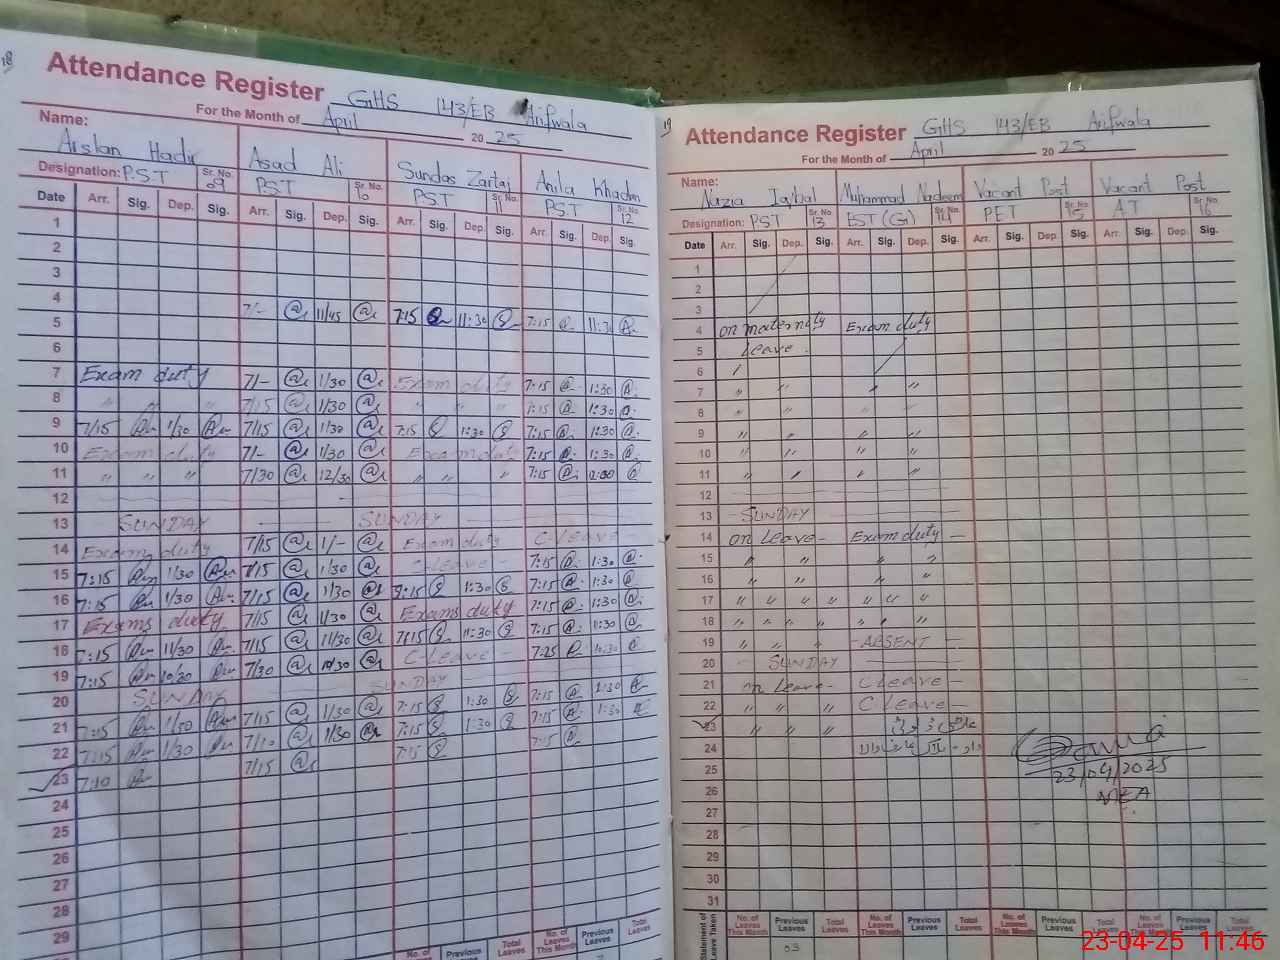 18
Attendance Register GHS 143/EB Arifwala
For the Month of April 2025
Name: Arslan Hadu Asad Ali Sundas Zartaj Anila Khadm
Designation: P.S.T Sr. No. 09 PST Sr. No. 10 P.S.T Sr. No. 11 P.S.T Sr. No. 12
Date Arr. Sig. Dep. Sig. Arr. Sig. Dep. Sig. Arr. Sig. Dep. Sig. Arr. Sig. Dep. Sig.
1
2
3
4
5 7/- 11/45 7:15 11:30 7:15 11:30
6
7 Exam duty 7/- 1/30 Exam duty 7:15 1:30
8 〃 〃 〃 7/15 1/30 〃 〃 〃 7:15 1:30
9 7/15 1/30 7/15 1/30 7:15 1:30 7:15 1:30
10 Exam duty 7/- 1/30 Exam duty 7:15 1:30
11 〃 〃 〃 7/30 12/30 〃 〃 〃 7:15
12
13 SUNDAY SUNDAY
14 Exam duty 7/15 1/- Exam duty C-Leave-
15 7:15 1/30 7/15 1/30 C-Leave- 7:15 1:30
16 7:15 1/30 7/15 1/30 1:30 7:15 1:30
17 Exams duty 7/15 1/30 Exams duty 7:15 1:30
18 7:15 11/30 7/15 11/30 7/15 11:30 7:15
19 7:15 10/30 7/30 10/30 C-Leave- 7:25
20 SUNDAY SUNDAY
21 7:15 1/30 7/15 1/30 7:15 1:30 7:15 1:30
22 7:15 1/30 7/10 1/30 7:15 1:30 7:15 1:30
23 7:10 7/15 7:15 7:15
24
25
26
27
28
29
No. of Leaves This Month Previous Leaves Total Leaves No. of Leaves This Month Previous Leaves Total Leaves
19
Attendance Register GHS 143/EB Arifwala
For the Month of April 2025
Name: Nazia Iqbal Muhammad Nadeem Vacant Post Vacant Post
Designation: PST Sr. No. 13 EST (G) Sr. No. 14 PET Sr. No. 15 AT Sr. No. 16
Date Arr. Sig. Dep. Sig. Arr. Sig. Dep. Sig. Arr. Sig. Dep. Sig. Arr. Sig. Dep. Sig.
1
2
3
4 on maternity Exam duty
5 leave.
6
7 〃 〃 〃 〃
8 〃 〃 〃 〃
9 〃 〃 〃 〃
10 〃 〃 〃 〃
11 〃 〃 〃 〃
12
13 SUNDAY
14 on Leave- Exam duty -
15 〃 〃 〃 〃
16 〃 〃 〃 〃
17 〃 〃 〃 〃 〃 〃 〃
18 〃 〃 〃 〃 〃 〃 〃
19 〃 〃 〃 -ABSENT-
20 SUNDAY
21 on Leave- C Leave-
22 〃 〃 〃 C Leave-
23 〃 〃 〃
24
25 23/04/2025
26 MEA
27
28
29
30
31
Statement of Leave Taken No. of Leaves This Month Previous Leaves Total Leaves No. of Leaves This Month Previous Leaves Total Leaves No. of Leaves This Month Previous Leaves Total Leaves No. of Leaves This Month Previous Leaves Total Leaves
03
23-04-25 11:46